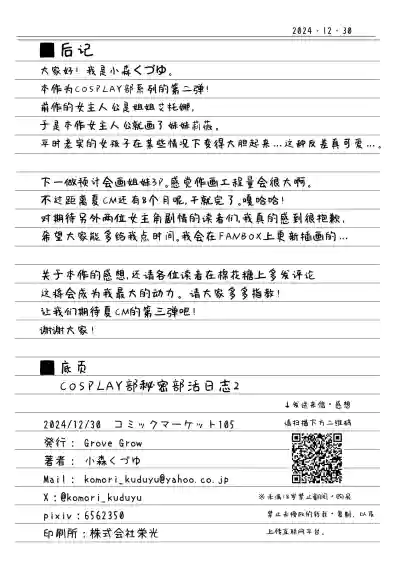 2024・12・30
■后记
大家好！我是小森くづゆ。
本作为COSPLAY部系列的第二弹！
前作的女主人公是姐姐艾托娜，
于是本作女主人公就画了妹妹莉薇。
平时老实的女孩子在某些情况下变得大胆起来…这种反差真可爱…。
下一做预计会画姐妹3P。感觉作画工程量会很大啊。
不过距离夏CM还有8个月呢，干就完了。嘎哈哈！
对期待另外两位女主角剧情的读者们，我真的感到很抱歉，
希望大家能多给我点时间。我会在FANBOX上更新插画的…
关于本作的感想，还请各位读者在棉花糖上多发评论
这将会成为我最大的动力。请大家多多指教！
让我们期待夏CM的第三弹吧！
谢谢大家！
■底页
COSPLAY部秘密部活日志2
↓发送来信・感想
请扫描下方二维码
2024/12/30 コミックマーケット105
発行： Grove Grow
著者： 小森くづゆ
Mail： komori_kuduyu@yahoo.co.jp
X：@komori_kuduyu
pixiv：6562350
印刷所：株式会社栄光
※未满18岁禁止翻阅・购买
禁止未授权的转载・复制、以及
上传互联网平台。